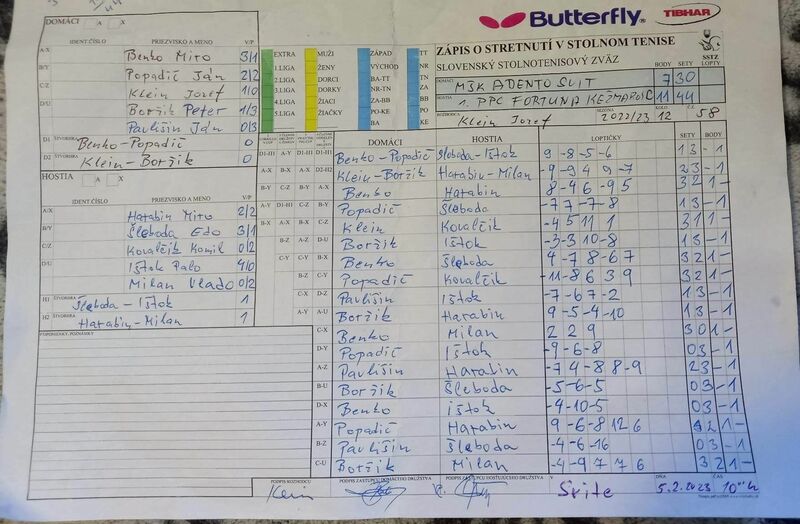 Butterfly
TIBHAR
ZÁPIS O STRETNUTÍ V STOLNOM TENISE
SLOVENSKÝ STOLNOTENISOVÝ ZVÄZ
SSTZ
DOMÁCI A X
IDENT.ČÍSLO PRIEZVISKO A MENO V/P
A/X Benko Miro 3/1
B/Y Popadič Ján 2/2
C/Z Klein Jozef 1/0
D/U Boržik Peter 1/3
Pavlišin Ján 0/3
D1 ŠTVORHRA Benko-Popadič 0
D2 ŠTVORHRA Klein-Boržik 0
HOSTIA A X
IDENT.ČÍSLO PRIEZVISKO A MENO V/P
A/X Harabin Miro 2/2
B/Y Šleboda Edo 3/1
C/Z Kovalčik Kamil 0/2
D/U Ištok Palo 4/0
Milan Vlado 0/2
H1 ŠTVORHRA Šleboda-Ištok 1
H2 ŠTVORHRA Harabin-Milan 1
PRIPOMIENKY, POZNÁMKY
EXTRA MUŽI ZÁPAD TT
1.LIGA ŽENY VÝCHOD NR
2.LIGA DORCI BA-TT TN
3.LIGA DORKY NR-TN ZA
4.LIGA ŽIACI ZA-BB BB
5.LIGA ŽIAČKY PO-KE PO
BA KE
BODY SETY LOPTY
DOMÁCI MŠK ADENTO SVIT 7 30
HOSTIA 1. PPC FORTUNA KEŽMAROK C 11 44
ROZHODCA Klein Jozef SEZÓNA 2022/23 KOLO 12 Č. 58
DOMÁCI HOSTIA LOPTIČKY SETY BODY
D1-H1 Benko-Popadič Šleboda-Ištok 9 -8 -5 -6 1 3 - 1
D2-H2 Klein-Boržik Harabin-Milan -9 -9 4 9 -7 2 3 - 1
A-X Benko Harabin 8 -4 6 -9 5 3 2 1 -
B-Y Popadič Šleboda -7 7 -7 -8 1 3 - 1
C-Z Klein Kovalčik -4 5 11 1 3 1 1 -
D-U Boržik Ištok -3 -3 10 -8 1 3 - 1
Benko Šleboda 4 -7 8 -6 7 3 2 1 -
Popadič Kovalčik -11 -8 6 3 9 3 2 1 -
Pavlišin Ištok -7 -6 7 -2 1 3 - 1
A-U Boržik Harabin 9 -5 -4 -10 1 3 - 1
C-X Benko Milan 2 2 9 3 0 1 -
D-Y Popadič Ištok -9 -6 -8 0 3 - 1
A-Z Pavlišin Harabin -7 4 -8 8 -9 2 3 - 1
B-U Boržik Šleboda -5 -6 -5 0 3 - 1
D-X Benko Ištok -4 -10 -5 0 3 - 1
A-Y Popadič Harabin 9 -6 -8 12 6 2 1 -
B-Z Pavlišin Šleboda -4 -6 -16 0 3 - 1
C-U Boržik Milan -4 -9 7 7 6 3 2 1 -
PODPIS ROZHODCU Klein
PODPIS ZÁSTUPCU DOMÁCEHO DRUŽSTVA
PODPIS ZÁSTUPCU HOSŤUJÚCEHO DRUŽSTVA
V Svite
DŇA 5.2.2023
ČAS 10⁰⁰ h